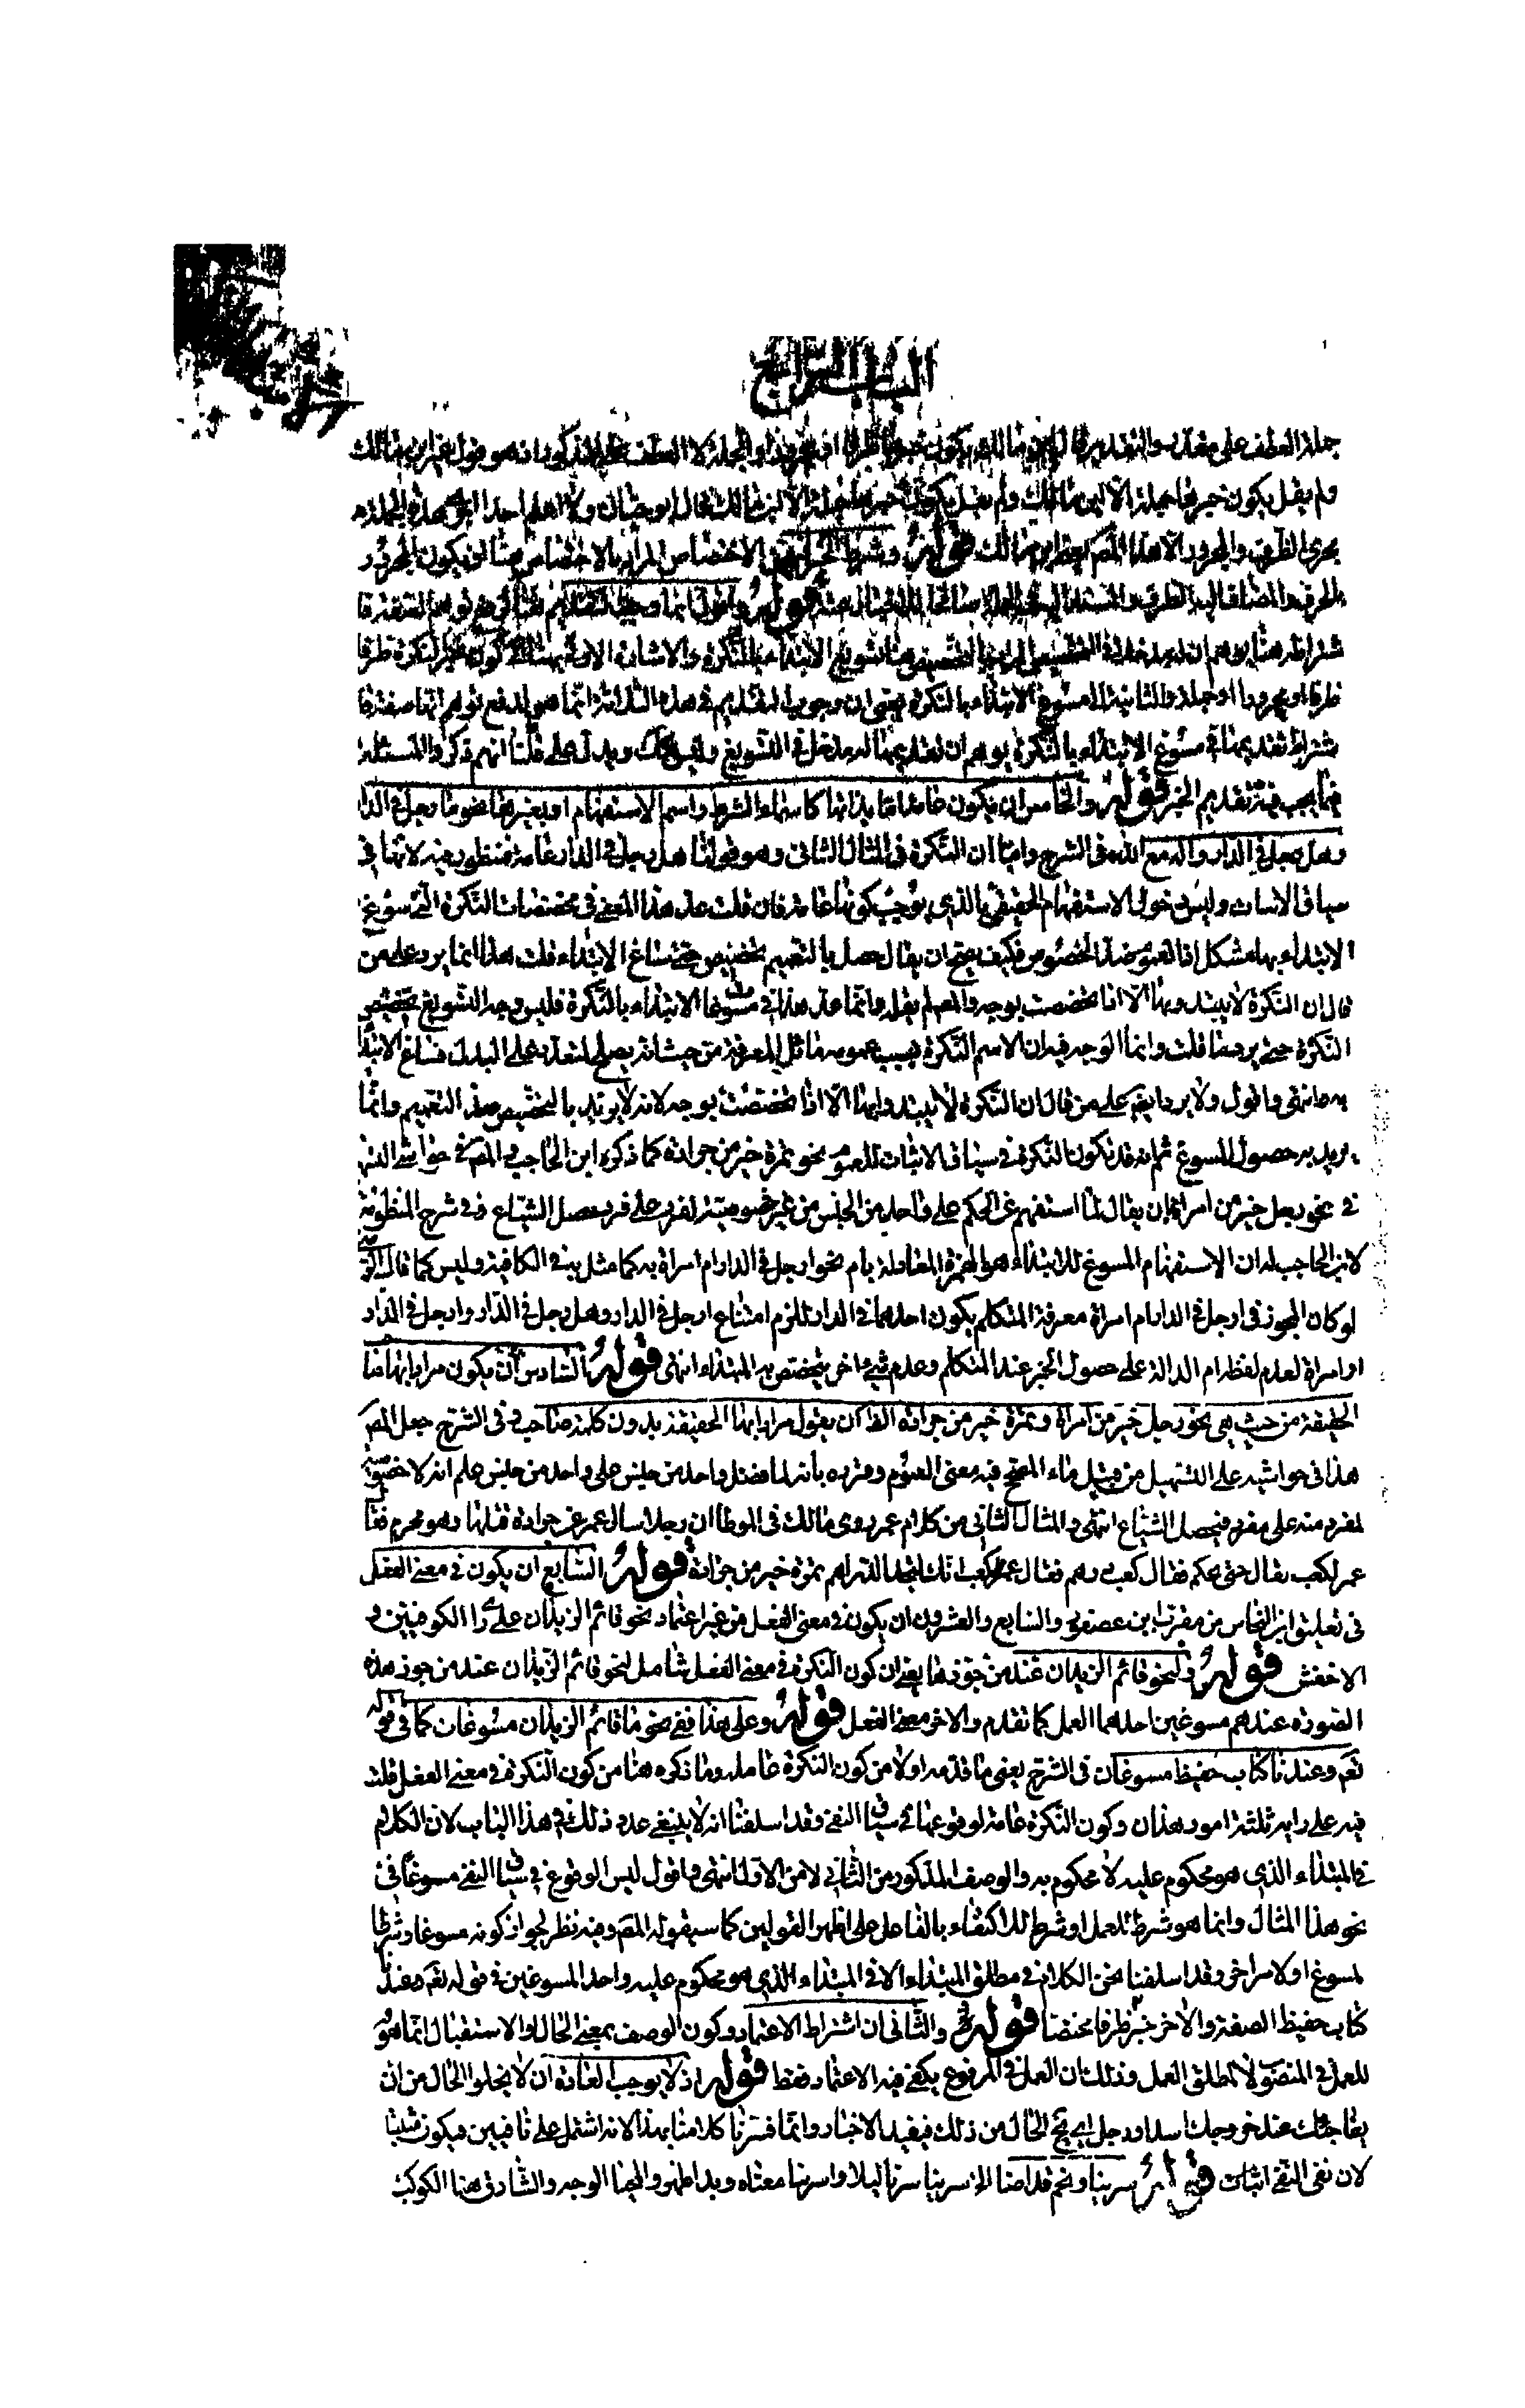 الباب الرابع
جملة العطف على مقدر والتقدير قال ابن مالك يكون خبرها ظرفا او مجرورا او جملة لا العطف على المذكور انه هو قول غير ابن مالك
ولم يقل بكون خبرها جملة الا ابن مالك ولم يقل بكون خبرها جملة الا ابن مالك قال ابو حيان ولا اعلم احدا اجرى هذه الجملة
مجرى الظرف والمجرور الا هذا المصنف ابن مالك قوله وشرط الخبر فيهن الاختصاص المراد بالاختصاص هنا ان يكون المجرور
بالحرف والمضاف اليه الظرف والمسند اليه في الجملة صالحا للاخبار عنه قوله واقول انما وجب التقديم هنا لدفع توهم الصفة
اشتراطه هنا يوهم ان له مدخلا في التخصيص المراد بالتخصيص هنا تسويغ الابتداء بالنكرة والاشارة الاولى بهنا الى كون خبر النكرة ظرفا
ظرفا او مجرورا او جملة والثانية الى مسوغ الابتداء بالنكرة يعني ان وجوب التقديم في هذه الثلاثة انما هو لدفع توهم انها صفة فا
شتراط تقديمها في مسوغ الابتداء بالنكرة يوهم ان لتقديمها له مدخل في التسويغ وليس كذلك ويدل على ما قلنا انهم ذكروا المسئلة
فيما يجب فيه تقديم الخبر قوله والخامس ان يكون عامة اما بذاتها كاسماء الشرط واسم الاستفهام او بغيرها نحو ما رجل في الدار
وهل رجل في الدار وا اله مع الله في الشرح واما ان النكرة في المثال الثاني وهو قولنا هل رجل في الدار عامة فمنظور فيه لانها في
سياق الاثبات وليس دخول الاستفهام الحقيقي بالذي يوجب كونها عامة فان قلت عد هذا المعنى في مخصصات النكرة التي تسوغ
الابتداء بها مشكل اذ العموم ضد الخصوص فكيف يصح ان يقال حصل بالتعميم تخصيص حتى ساغ الابتداء قلت هذا انما يرد على من
قال ان النكرة لا يبتدء بها الا اذا تخصصت بوجه والمصنف لم يقله وانما عد هذا في مسوغات الابتداء بالنكرة فليس وجه التسويغ تخصيص
النكرة حتى يرد ما قلت وانما الوجه فيه ان الاسم النكرة بسبب عمومه ماثل للمعرفة من حيث انه يصلح لمتعدد على البدل فساغ الابتداء
به انتهى واقول ولا يرد ايضا على من قال ان النكرة لا يبتدء بها الا اذا تخصصت بوجه لانه لا يريد بالتخصيص ضد التعميم وانما
يريد به حصول المسوغ ثم انه قد تكون النكرة في سياق الاثبات للعموم نحو تمرة خير من جرادة كما ذكره ابن الحاجب والمصنف في حواشي التسهيل
في نحو رجل خير من امراة ان يقال لما استفهم عن الحكم على واحد من الجنس من غير خصوصية لفرد على فرد حصل الشياع وفي شرح المنظومة
لابن الحاجب له ان الاستفهام المسوغ للابتداء هو الهمزة المعادلة بام نحو ارجل في الدار ام امراة به كما مثل به في الكافية وليس كما قال
لو كان المجوز في ارجل في الدار ام امراة معرفة المتكلم بكون احدهما في الدار للزم امتناع ارجل في الدار وهل رجل في الدار وارجل في الدار
او امراة لعدم لفظ ام الدالة على حصول الخبر عند المتكلم وعدم شيء اخر يتخصص به المبتداء انتهى قوله السادس ان يكون مرادا بها صاحب
الحقيقة من حيث هي نحو رجل خير من امراة وتمرة خير من جرادة الظاهر ان يقول مرادا بها الحقيقة بدون كلمة صاحب وفي الشرح جعل المصنف
هذا في حواشيه على التسهيل من قبيل ما المصحح فيه معنى العموم وقرره بانه لما فضل واحد من جنس على واحد من جنس علم انه لا خصوصية
لفرد منه على مفرد فيحصل الشياع انتهى والمثال الثاني من كلام عمر روى مالك في الموطا ان رجلا سال عمر عن جرادة قتلها وهو محرم فقال
عمر لكعب تعال حتى نحكم فقال كعب درهم فقال عمر لكعب انك لتجد الدراهم تمرة خير من جرادة قوله السابع ان يكون في معنى الفعل
في تعليق ابن النحاس من مقرب ابن عصفور والسابع والعشرون ان يكون في معنى الفعل من غير اعتماد نحو قائم الزيدان على راى الكوفيين و
الاخفش قوله ولنحو قائم الزيدان عند من جوزها يعني ان كون النكرة في معنى الفعل شامل لنحو قائم الزيدان عند من جوز هذه
الصورة عندهم مسوغين احدهما العمل كما تقدم والاخر معنى الفعل قوله وعلى هذا ففي نحو ما قائم الزيدان مسوغان كما في قوله
تعم وعندنا كتاب حفيظ مسوغان في الشرح يعني ما قدمه اولا من كون النكرة عاملة وما ذكره هنا من كون النكرة في معنى الفعل قلت
فيه على رايه ثلثة امور هذان وكون النكرة عامة لوقوعها في سياق النفي وقد اسلفنا انه لا ينبغي عد ذلك في هذا الباب لان الكلام
في المبتداء الذي هو محكوم عليه لا محكوم به والوصف المذكور من الثاني لا من الاول انتهى واقول ليس الوقوع في سياق النفي مسوغا في
نحو هذا المثال وانما هو شرط للعمل او شرط للاكتفاء بالفاعل على اظهر القولين كما سيقوله المصنف وفيه نظر لجواز كونه مسوغا وشرطا
لمسوغ اولا من اخر وقد اسلفنا نحن الكلام في مطلق المبتداء لا في المبتداء الذي هو محكوم عليه واحد المسوغين في قوله تعم وعندنا
كتاب حفيظ الصفة والاخر خبر ظرفا مختصا قوله والثاني ان اشتراط الاعتماد وكون الوصف بمعنى الحال او الاستقبال انما هو
للعمل في المنصوب لا لمطلق العمل وذلك ان العمل في المرفوع يكفي فيه الاعتماد فقط قوله اذ لا يوجب العادة ان لا يخلو الحال من ان
يفاجئك عند خروجك اسد او رجل اي تخلو الحال من ذلك فيفيد الاخبار وانما فسرنا كلامنا بهذا لانه اشتمل على نافيين فيكون مثبتا
لان نفي النفي اثبات قوله سرينا ونجم قد اضا الخ سرينا سرنا ليلا واسرينا معناه وبدا ظهر والمحيا الوجه والشارق هنا الكوكب